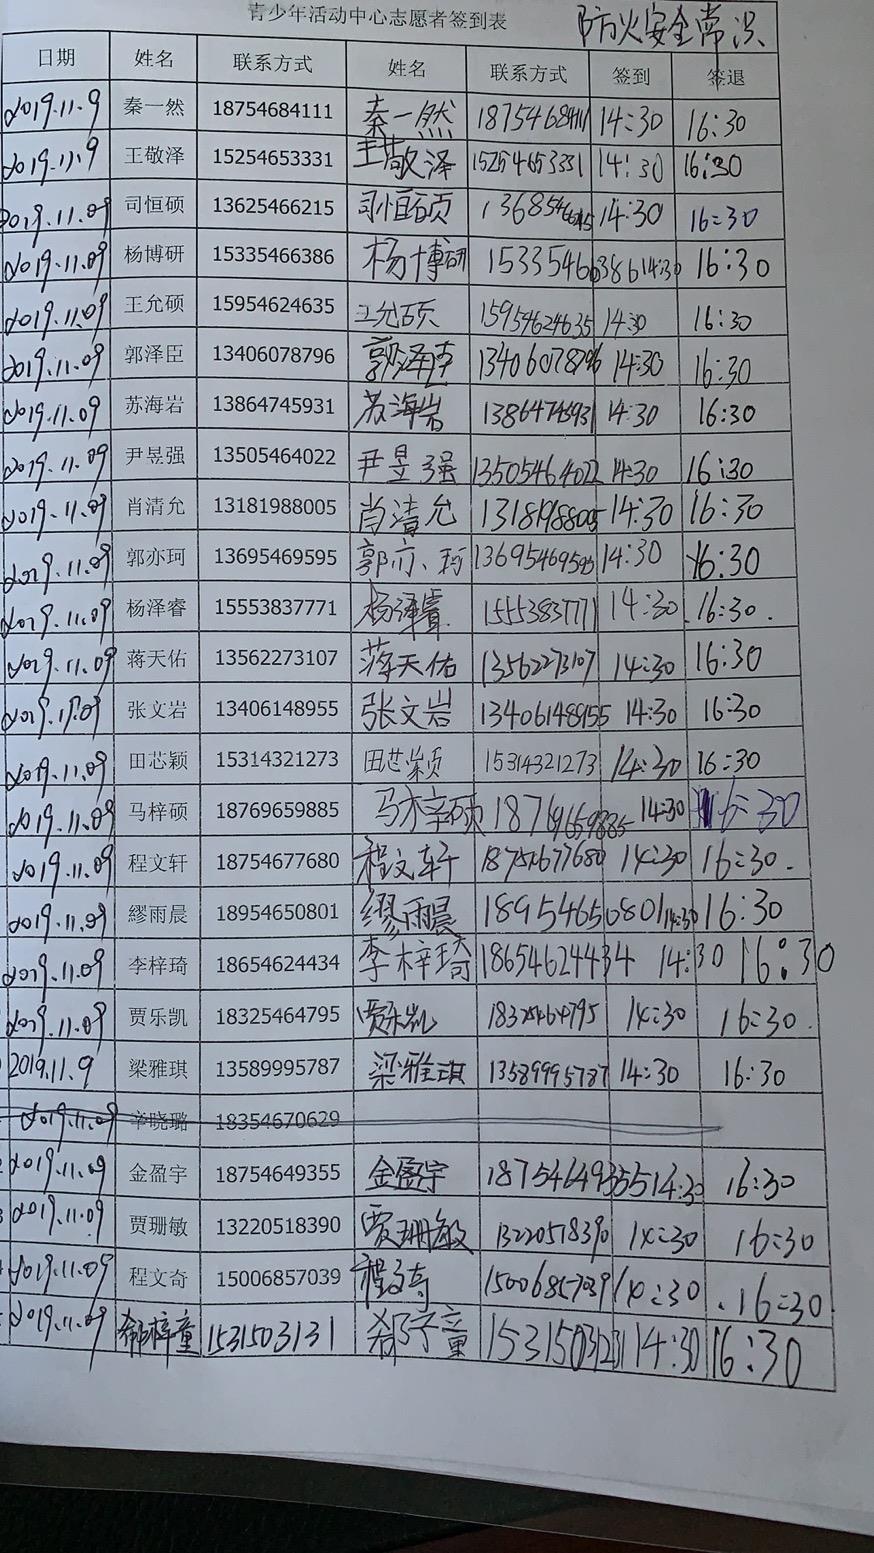 青少年活动中心志愿者签到表 防火安全常识
日期 姓名 联系方式 姓名 联系方式 签到 签退
2019.11.9 秦一然 18754684111 秦一然 18754684111 14:30 16:30
2019.11.9 王敬泽 15254653331 王敬泽 15254653331 14:30 16:30
2019.11.09 司恒硕 13625466215 司恒硕 14:30 16:30
2019.11.09 杨博研 15335466386 杨博研 15335466386 14:30 16:30
2019.11.09 王允硕 15954624635 王允硕 15954624635 14:30 16:30
2019.11.09 郭泽臣 13406078796 郭泽臣 13406078796 14:30 16:30
2019.11.09 苏海岩 13864745931 苏海岩 13864745931 14:30 16:30
2019.11.09 尹昱强 13505464022 尹昱强 13505464022 14:30 16:30
2019.11.09 肖清允 13181988005 肖清允 13181988005 14:30 16:30
2019.11.09 郭亦珂 13695469595 郭亦珂 13695469595 14:30 16:30
2019.11.09 杨泽睿 15553837771 杨泽睿 15553837771 14:30 16:30
2019.11.09 蒋天佑 13562273107 蒋天佑 13562273107 14:30 16:30
2019.11.09 张文岩 13406148955 张文岩 13406148955 14:30 16:30
2019.11.09 田芯颖 15314321273 田芯颖 15314321273 14:30 16:30
2019.11.09 马梓硕 18769659885 马梓硕 18769659885 14:30 16:30
2019.11.09 程文轩 18754677680 程文轩 18754677680 14:30 16:30
2019.11.09 繆雨晨 18954650801 繆雨晨 18954650801 14:30 16:30
2019.11.09 李梓琦 18654624434 李梓琦 18654624434 14:30 16:30
2019.11.09 贾乐凯 18325464795 贾乐凯 18325464795 14:30 16:30
2019.11.9 梁雅琪 13589995787 梁雅琪 13589995787 14:30 16:30
2019.11.09 辛晓璐 18354670629
2019.11.09 金盈宇 18754649355 金盈宇 18754649355 14:30 16:30
2019.11.09 贾珊敏 13220518390 贾珊敏 13220518390 14:30 16:30
2019.11.09 程文奇 15006857039 程文奇 15006857039 14:30 16:30
2019.11.09 郗梓童 1531503131 郗子童 14:30 16:30